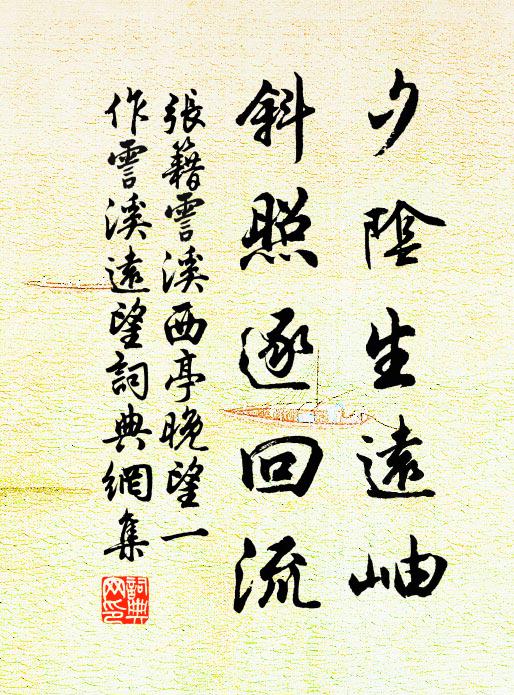 夕陰生遠岫
斜照逐回流
張籍霅溪西亭晚望一
作霅溪遠望詞典網集
詞典
网印